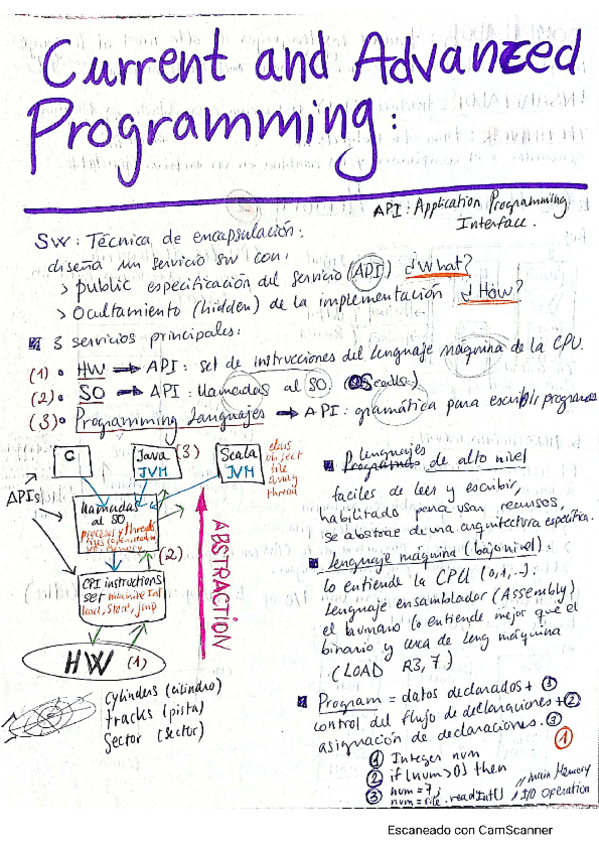 Current and Advanced
Programming:
API: Application Programming
Interface.
SW: Técnica de encapsulación:
diseña un servicio sw con:
> public especificación del servicio (API) ¿What?
> Ocultamiento (hidden) de la implementación ¿How?
3 servicios principales:
(1) • HW → API: set de instrucciones del lenguaje máquina de la CPU.
(2) • SO → API: llamadas al SO. (OS calls)
(3) • Programming Languajes → API: gramática para escribir programas
C
Java (3)
JVM
Scala
JVM
class
object
file
array
thread
APIs
llamadas
al SO
process y threads
files (open, read...)
I/O. Memory
(2)
CPI instructions
set machine Inst
load, Store, jmp
ABSTRACTION
HW (1)
cylinders (cilindro)
tracks (pista)
Sector (sector)
lenguajes
de alto nivel
faciles de leer y escribir,
habilitado para usar recursos,
se abstrae de una arquitectura específica.
Lenguaje máquina (bajo nivel):
lo entiende la CPU (0,1,..)
Lenguaje ensamblador (Assembly)
el humano lo entiende mejor que el
binario y cerca de leng máquina
(LOAD R3, 7)
Program = datos declarados + ①
control del flujo de declaraciones + ②
asignación de declaraciones. ③
①
① Integer num
② if (num > 0) then
③ num = 7; // main Memory
num = file.readInt() // I/O operation
Escaneado con CamScanner